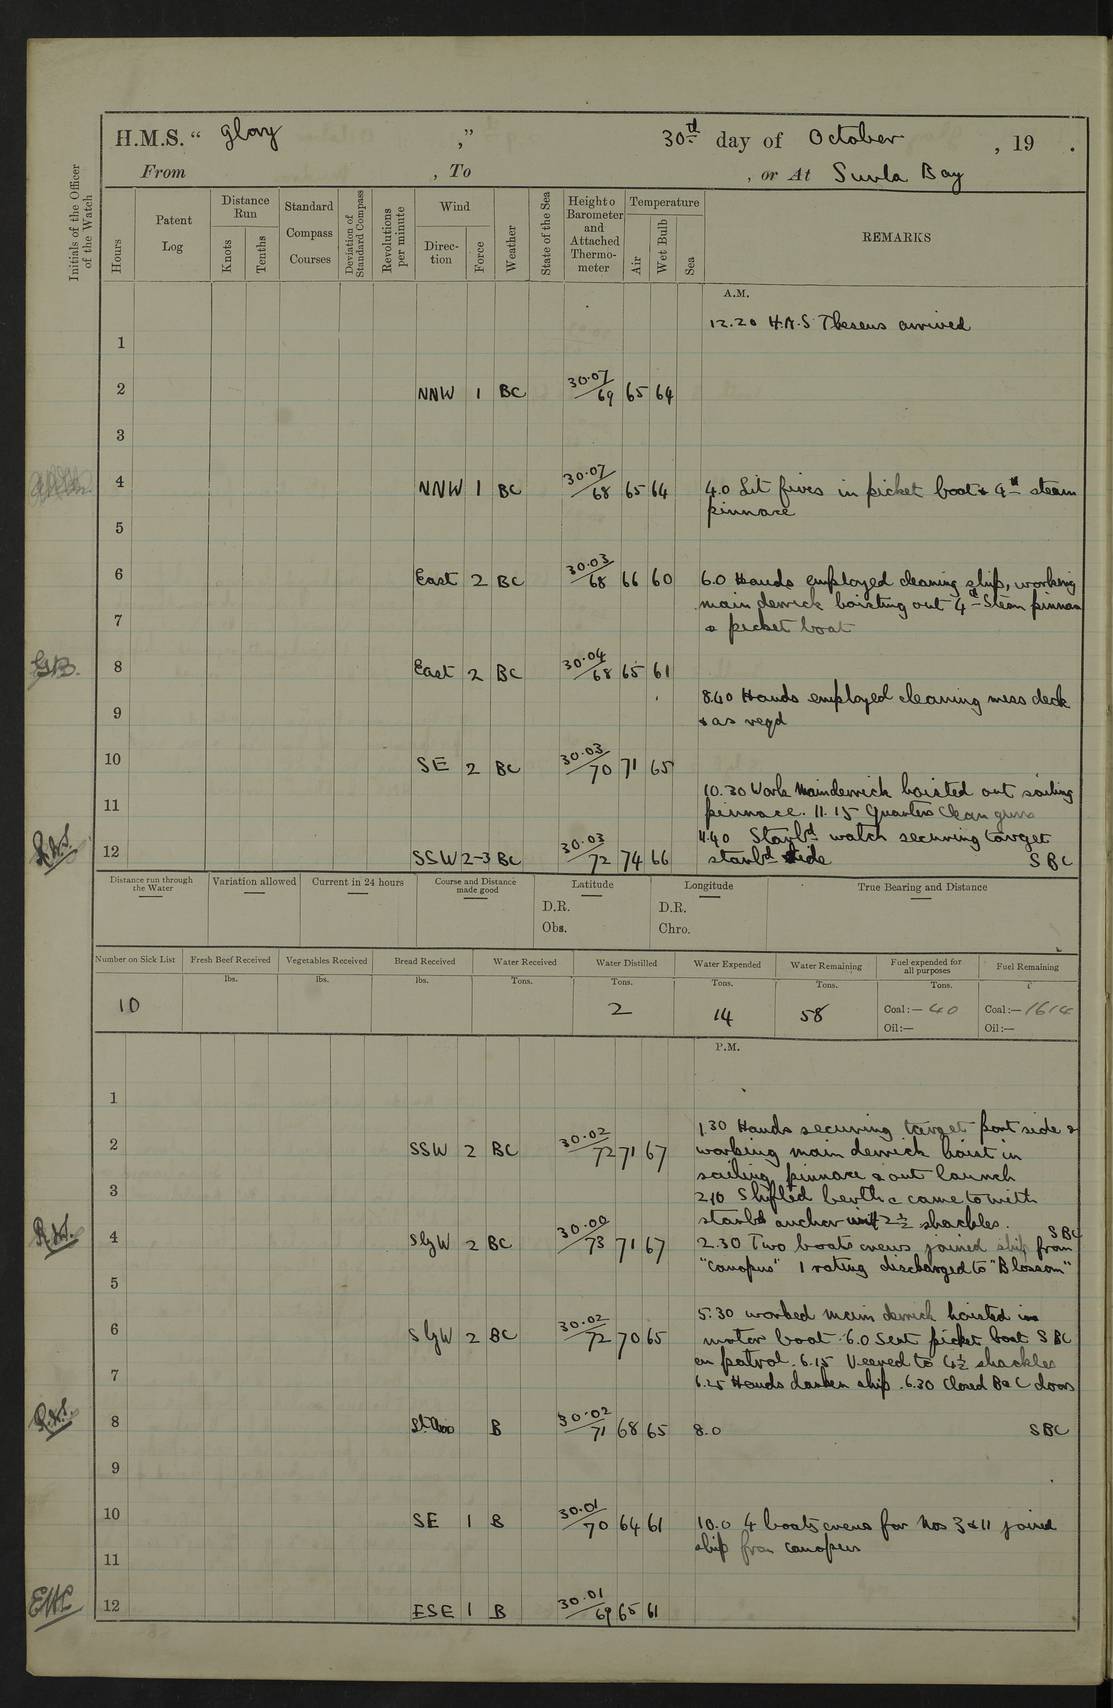 H.M.S. “ Glory ,” 30th day of October , 19 .
From , To , or At Suvla Bay
Initials of the Officer of the Watch
Hours
Patent Log
Distance Run
Knots
Tenths
Standard Compass Courses
Deviation of Standard Compass
Revolutions per minute
Wind
Direc- tion
Force
Weather
State of the Sea
Height o Barometer and Attached Thermo- meter
Temperature
Air
Wet Bulb
Sea
REMARKS
A.M.
12.20 H.M.S Theseus arrived
1
2 NNW 1 BC 30.07/69 65 64
3
4 NNW 1 BC 30.07/68 65 64 4.0 Lit fires in picket boat & 4th steam
pinnace
5
6 East 2 BC 30.03/68 66 60 6.0 Hands employed cleaning ship, working
main derrick hoisting out 4th Steam pinnace
7
& picket boat
8 East 2 BC 30.04/68 65 61
8.40 Hands employed cleaning mess deck
9
& as reqd
10 SE 2 BC 30.03/70 71 65
10.30 Work Mainderrick hoisted out sailing
11
pinnace. 11.15 Quarters Clean guns
11.40 Starbd watch securing target
12 SSW 2-3 BC 30.03/72 74 66 starbd side SBC
Distance run through the Water
Variation allowed
Current in 24 hours
Course and Distance made good
Latitude
D.R.
Obs.
Longitude
D.R.
Chro.
True Bearing and Distance
Number on Sick List
Fresh Beef Received
Vegetables Received
Bread Received
Water Received
Water Distilled
Water Expended
Water Remaining
Fuel expended for all purposes
Fuel Remaining
lbs. lbs. lbs. Tons. Tons. Tons. Tons. Tons.
10 2 14 58 Coal:— 40 Coal:— 1614
Oil:— Oil:—
P.M.
1
1.30 Hands securing target port side &
2 SSW 2 BC 30.02/72 71 67 working main derrick hoist in
sailing pinnace & out launch
3
2.10 Shifted berth & came to with
starbd anchor with 2½ shackles. SBC
4 SbyW 2 BC 30.00/73 71 67 2.30 Two boats crews joined ship from
"Canopus" 1 rating discharged to "Blossom"
5
5.30 worked main derrick hoisted in
6 SbyW 2 BC 30.02/72 70 65 motor boat. 6.0 Sent picket boat SBC
on patrol. 6.15 Veered to 4½ shackles
7
6.25 Hands darken ship. 6.30 Closed B & C doors
8 Lt. Airs B 30.02/71 68 65 8.0 SBC
9
10 SE 1 B 30.01/70 64 61 10.0 4 boats crews for Nos 3 & 11 joined
ship from Canopus
11
12 ESE 1 B 30.01/69 65 61